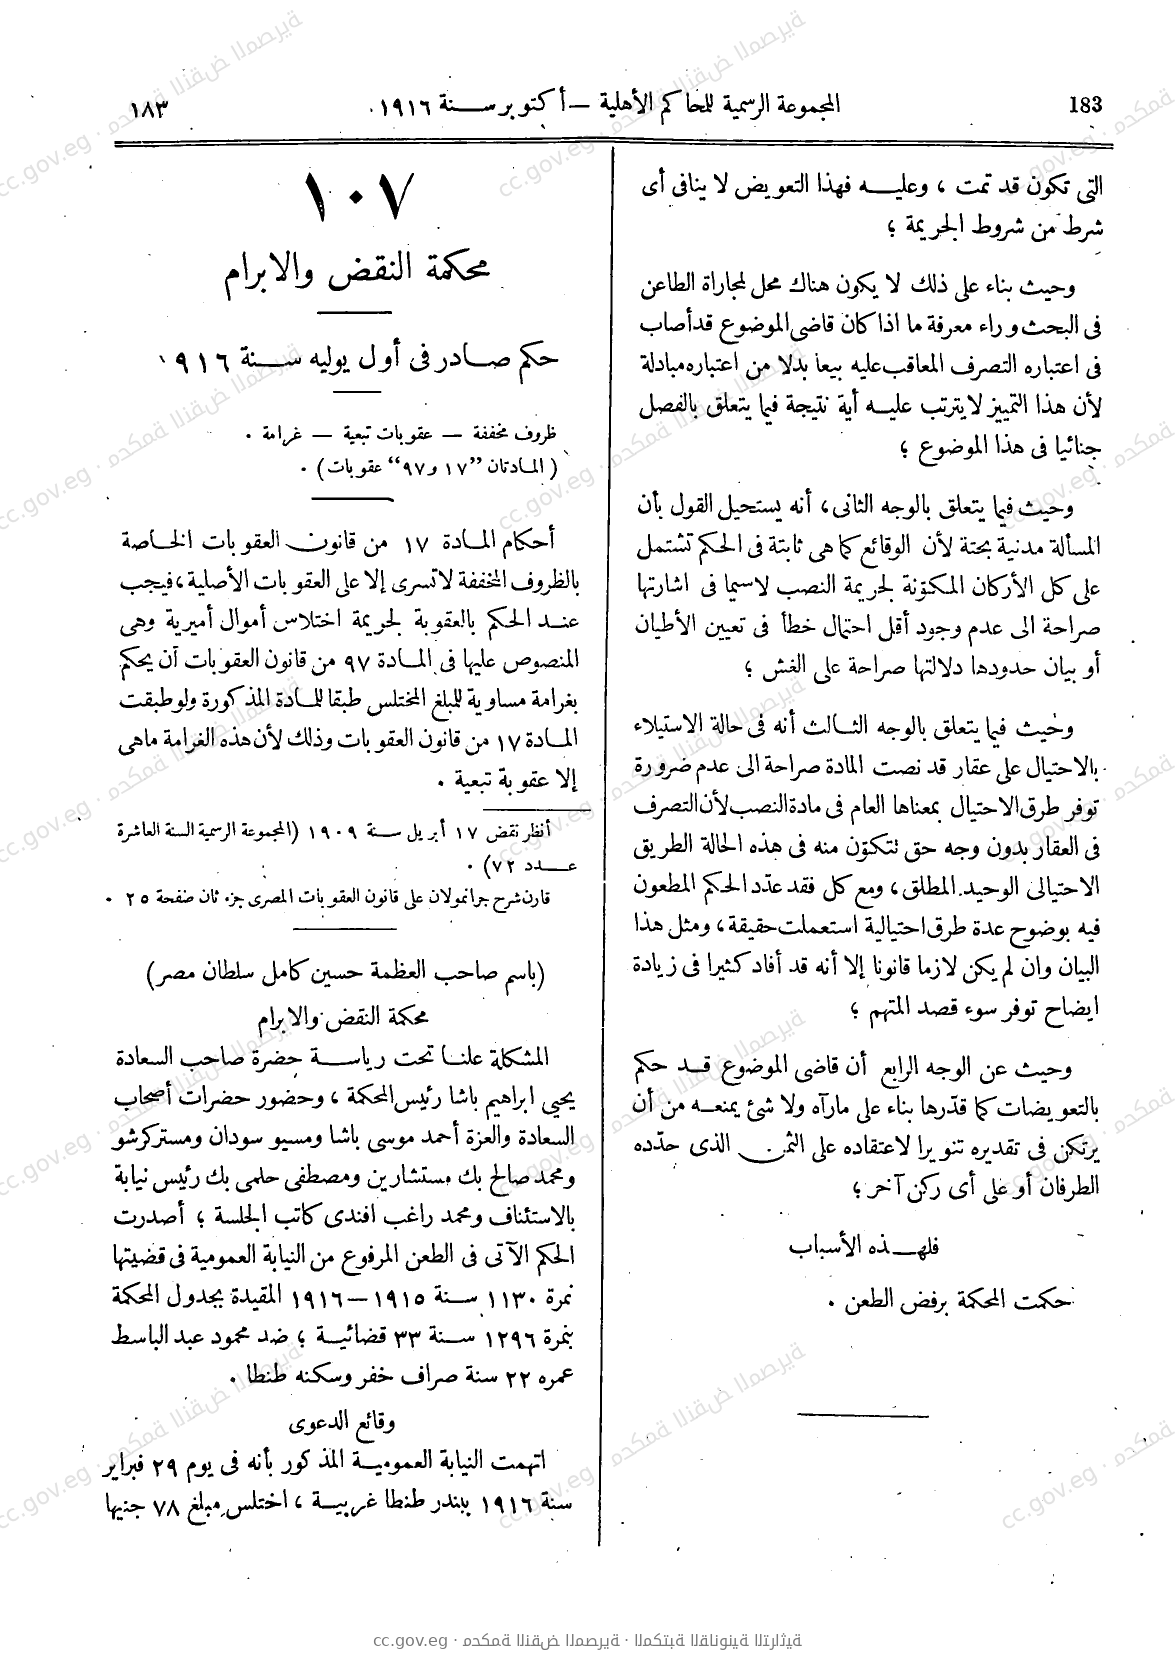 183
المجموعة الرسمية للمحاكم الأهلية — أكتوبر سنة ١٩١٦.
١٨٣
التى تكون قد تمت ، وعليه فهذا التعويض لا ينافى أى
شرط من شروط الجريمة ؛
وحيث بناء على ذلك لا يكون هناك محل لمجاراة الطاعن
فى البحث وراء معرفة ما اذا كان قاضى الموضوع قد أصاب
فى اعتباره التصرف المعاقب عليه بيعا بدلا من اعتباره مبادلة
لأن هذا التمييز لا يترتب عليه أية نتيجة فيما يتعلق بالفصل
جنائيا فى هذا الموضوع ؛
وحيث فيما يتعلق بالوجه الثانى ، أنه يستحيل القول بأن
المسألة مدنية بحتة لأن الوقائع كما هى ثابتة فى الحكم تشتمل
على كل الأركان المكوّنة لجريمة النصب لاسيما فى اشارتها
صراحة الى عدم وجود أقل احتمال خطأ فى تعيين الأطيان
أو بيان حدودها دلالتها صراحة على الغش ؛
وحيث فيما يتعلق بالوجه الثالث أنه فى حالة الاستيلاء
بالاحتيال على عقار قد نصت المادة صراحة الى عدم ضرورة
توفر طرق الاحتيال بمعناها العام فى مادة النصب لأن التصرف
فى العقار بدون وجه حق تتكوّن منه فى هذه الحالة الطريق
الاحتيالى الوحيد المطلق ، ومع كل فقد عدّد الحكم المطعون
فيه بوضوح عدة طرق احتيالية استعملت حقيقة ، ومثل هذا
البيان وان لم يكن لازما قانونا إلا أنه قد أفاد كثيرا فى زيادة
ايضاح توفر سوء قصد المتهم ؛
وحيث عن الوجه الرابع أن قاضى الموضوع قد حكم
بالتعويضات كما قدّرها بناء على مارآه ولا شئ يمنعه من أن
يرتكن فى تقديره تنويرا لاعتقاده على الثمن الذى حدّده
الطرفان أو على أى ركن آخر ؛
فلهذه الأسباب
حكمت المحكمة برفض الطعن .
١٠٧
محكمة النقض والابرام
حكم صادر فى أول يوليه سنة ١٩١٦
ظروف مخففة — عقوبات تبعية — غرامة .
(المادتان "١٧ و٩٧" عقوبات) .
أحكام المادة ١٧ من قانون العقوبات الخاصة
بالظروف المخففة لا تسرى إلا على العقوبات الأصلية ، فيجب
عند الحكم بالعقوبة لجريمة اختلاس أموال أميرية وهى
المنصوص عليها فى المادة ٩٧ من قانون العقوبات أن يحكم
بغرامة مساوية للمبلغ المختلس طبقا للمادة المذكورة ولو طبقت
المادة ١٧ من قانون العقوبات وذلك لأن هذه الغرامة ماهى
إلا عقوبة تبعية .
أنظر نقض ١٧ أبريل سنة ١٩٠٩ (المجموعة الرسمية السنة العاشرة
عدد ٧٢) .
قارن شرح جرانمولان على قانون العقوبات المصرى جزء ثان صفحة ٢٥ .
(باسم صاحب العظمة حسين كامل سلطان مصر)
محكمة النقض والابرام
المشكلة علنا تحت رياسة حضرة صاحب السعادة
يحيى ابراهيم باشا رئيس المحكمة ، وحضور حضرات أصحاب
السعادة والعزة أحمد موسى باشا ومسيو سودان ومستر كرشو
ومحمد صالح بك مستشارين ومصطفى حلمى بك رئيس نيابة
بالاستئناف ومحمد راغب افندى كاتب الجلسة ؛ أصدرت
الحكم الآتى فى الطعن المرفوع من النيابة العمومية فى قضيتها
نمرة ١١٣٠ سنة ١٩١٥—١٩١٦ المقيدة بجدول المحكمة
بنمرة ١٢٩٦ سنة ٣٣ قضائية ؛ ضد محمود عبد الباسط
عمره ٢٢ سنة صراف خفر وسكنه طنطا .
وقائع الدعوى
اتهمت النيابة العمومية المذكور بأنه فى يوم ٢٩ فبراير
سنة ١٩١٦ ببندر طنطا غربية ، اختلس مبلغ ٧٨ جنيها
cc.gov.eg · محكمة النقض المصرية · المكتبة القانونية التراثية